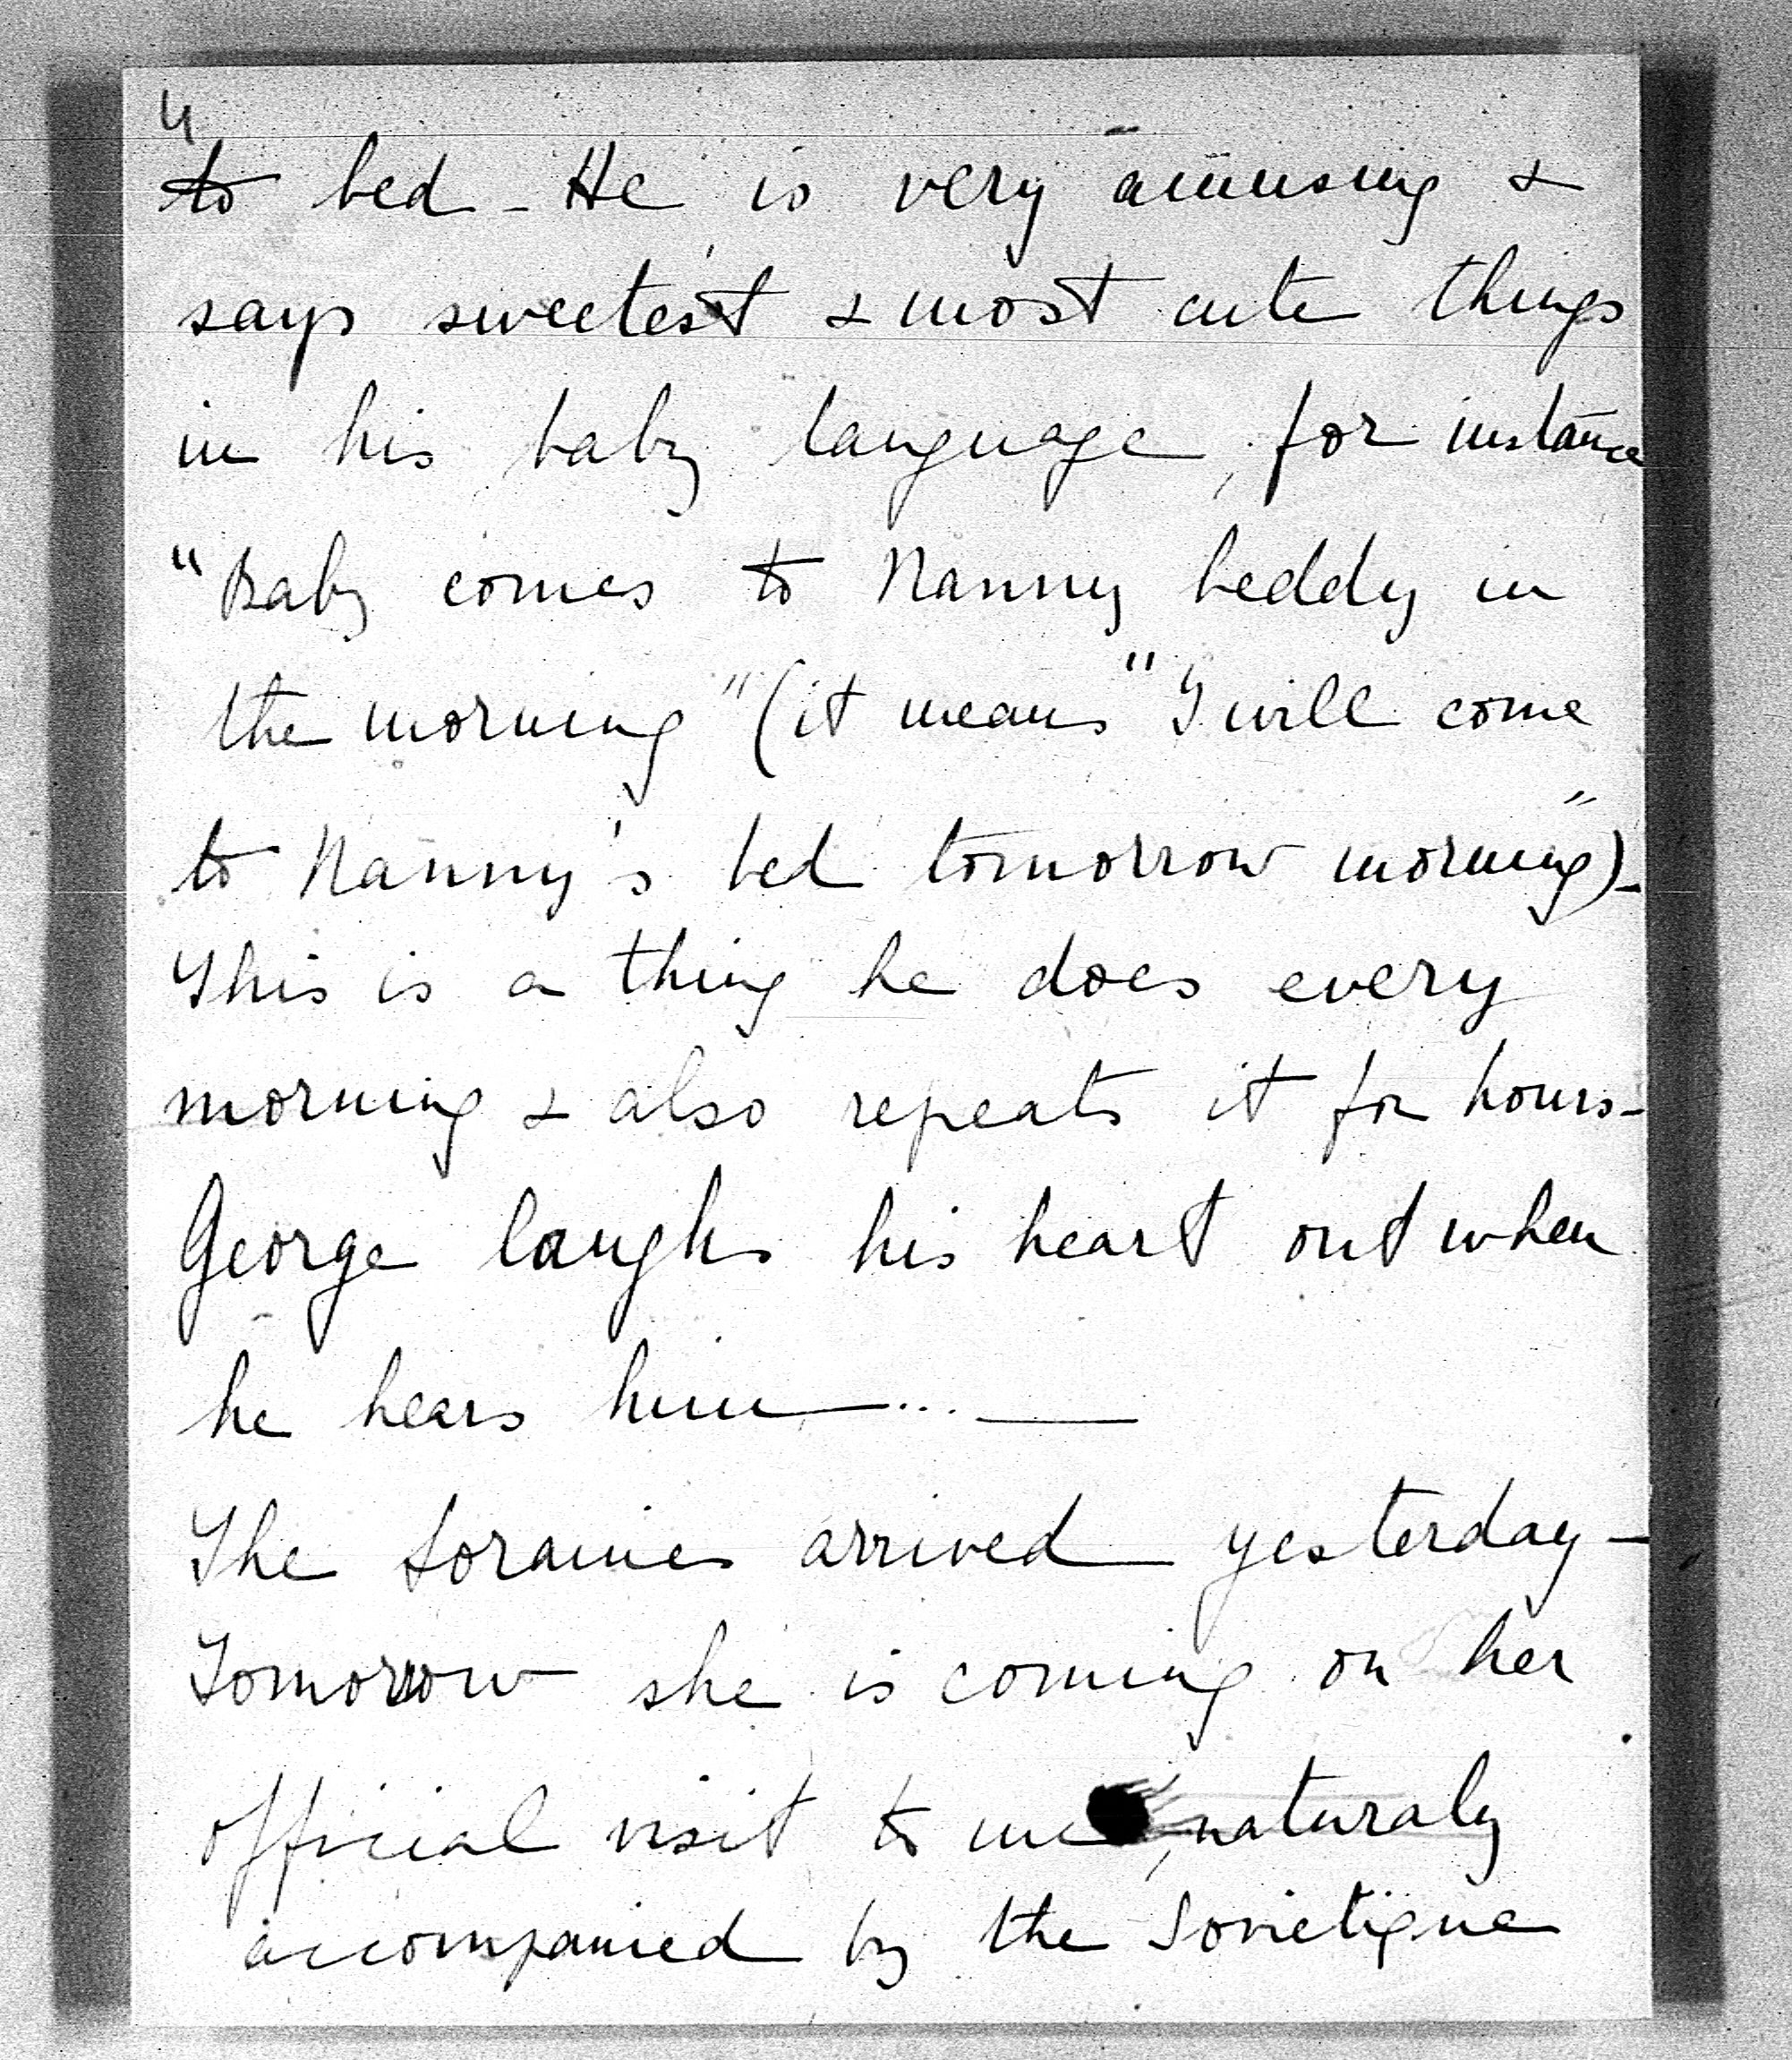 4
to bed - He is very amusing &
says sweetest & most cute things
in his baby language, for instance
"Baby comes to Nanny beddy in
the morning" (it means "I will come
to Nanny's bed tomorrow morning") -
This is a thing he does every
morning & also repeats it for hours -
George laughs his heart out when
he hears him — ... —
The Loraines arrived yesterday -
Tomorrow she is coming on her
official visit to me, naturaly
accompanied by the Sovietique